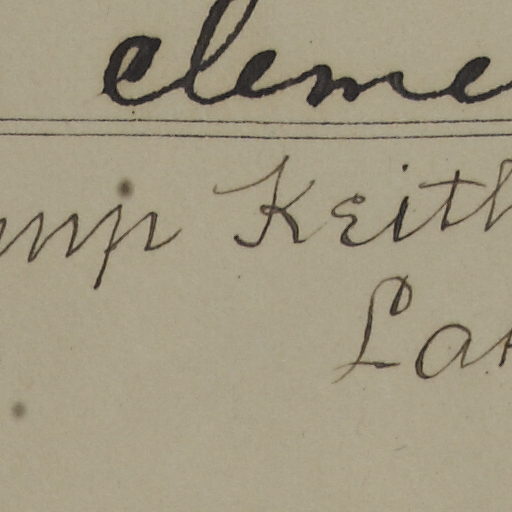 cleme
mp Keith
La